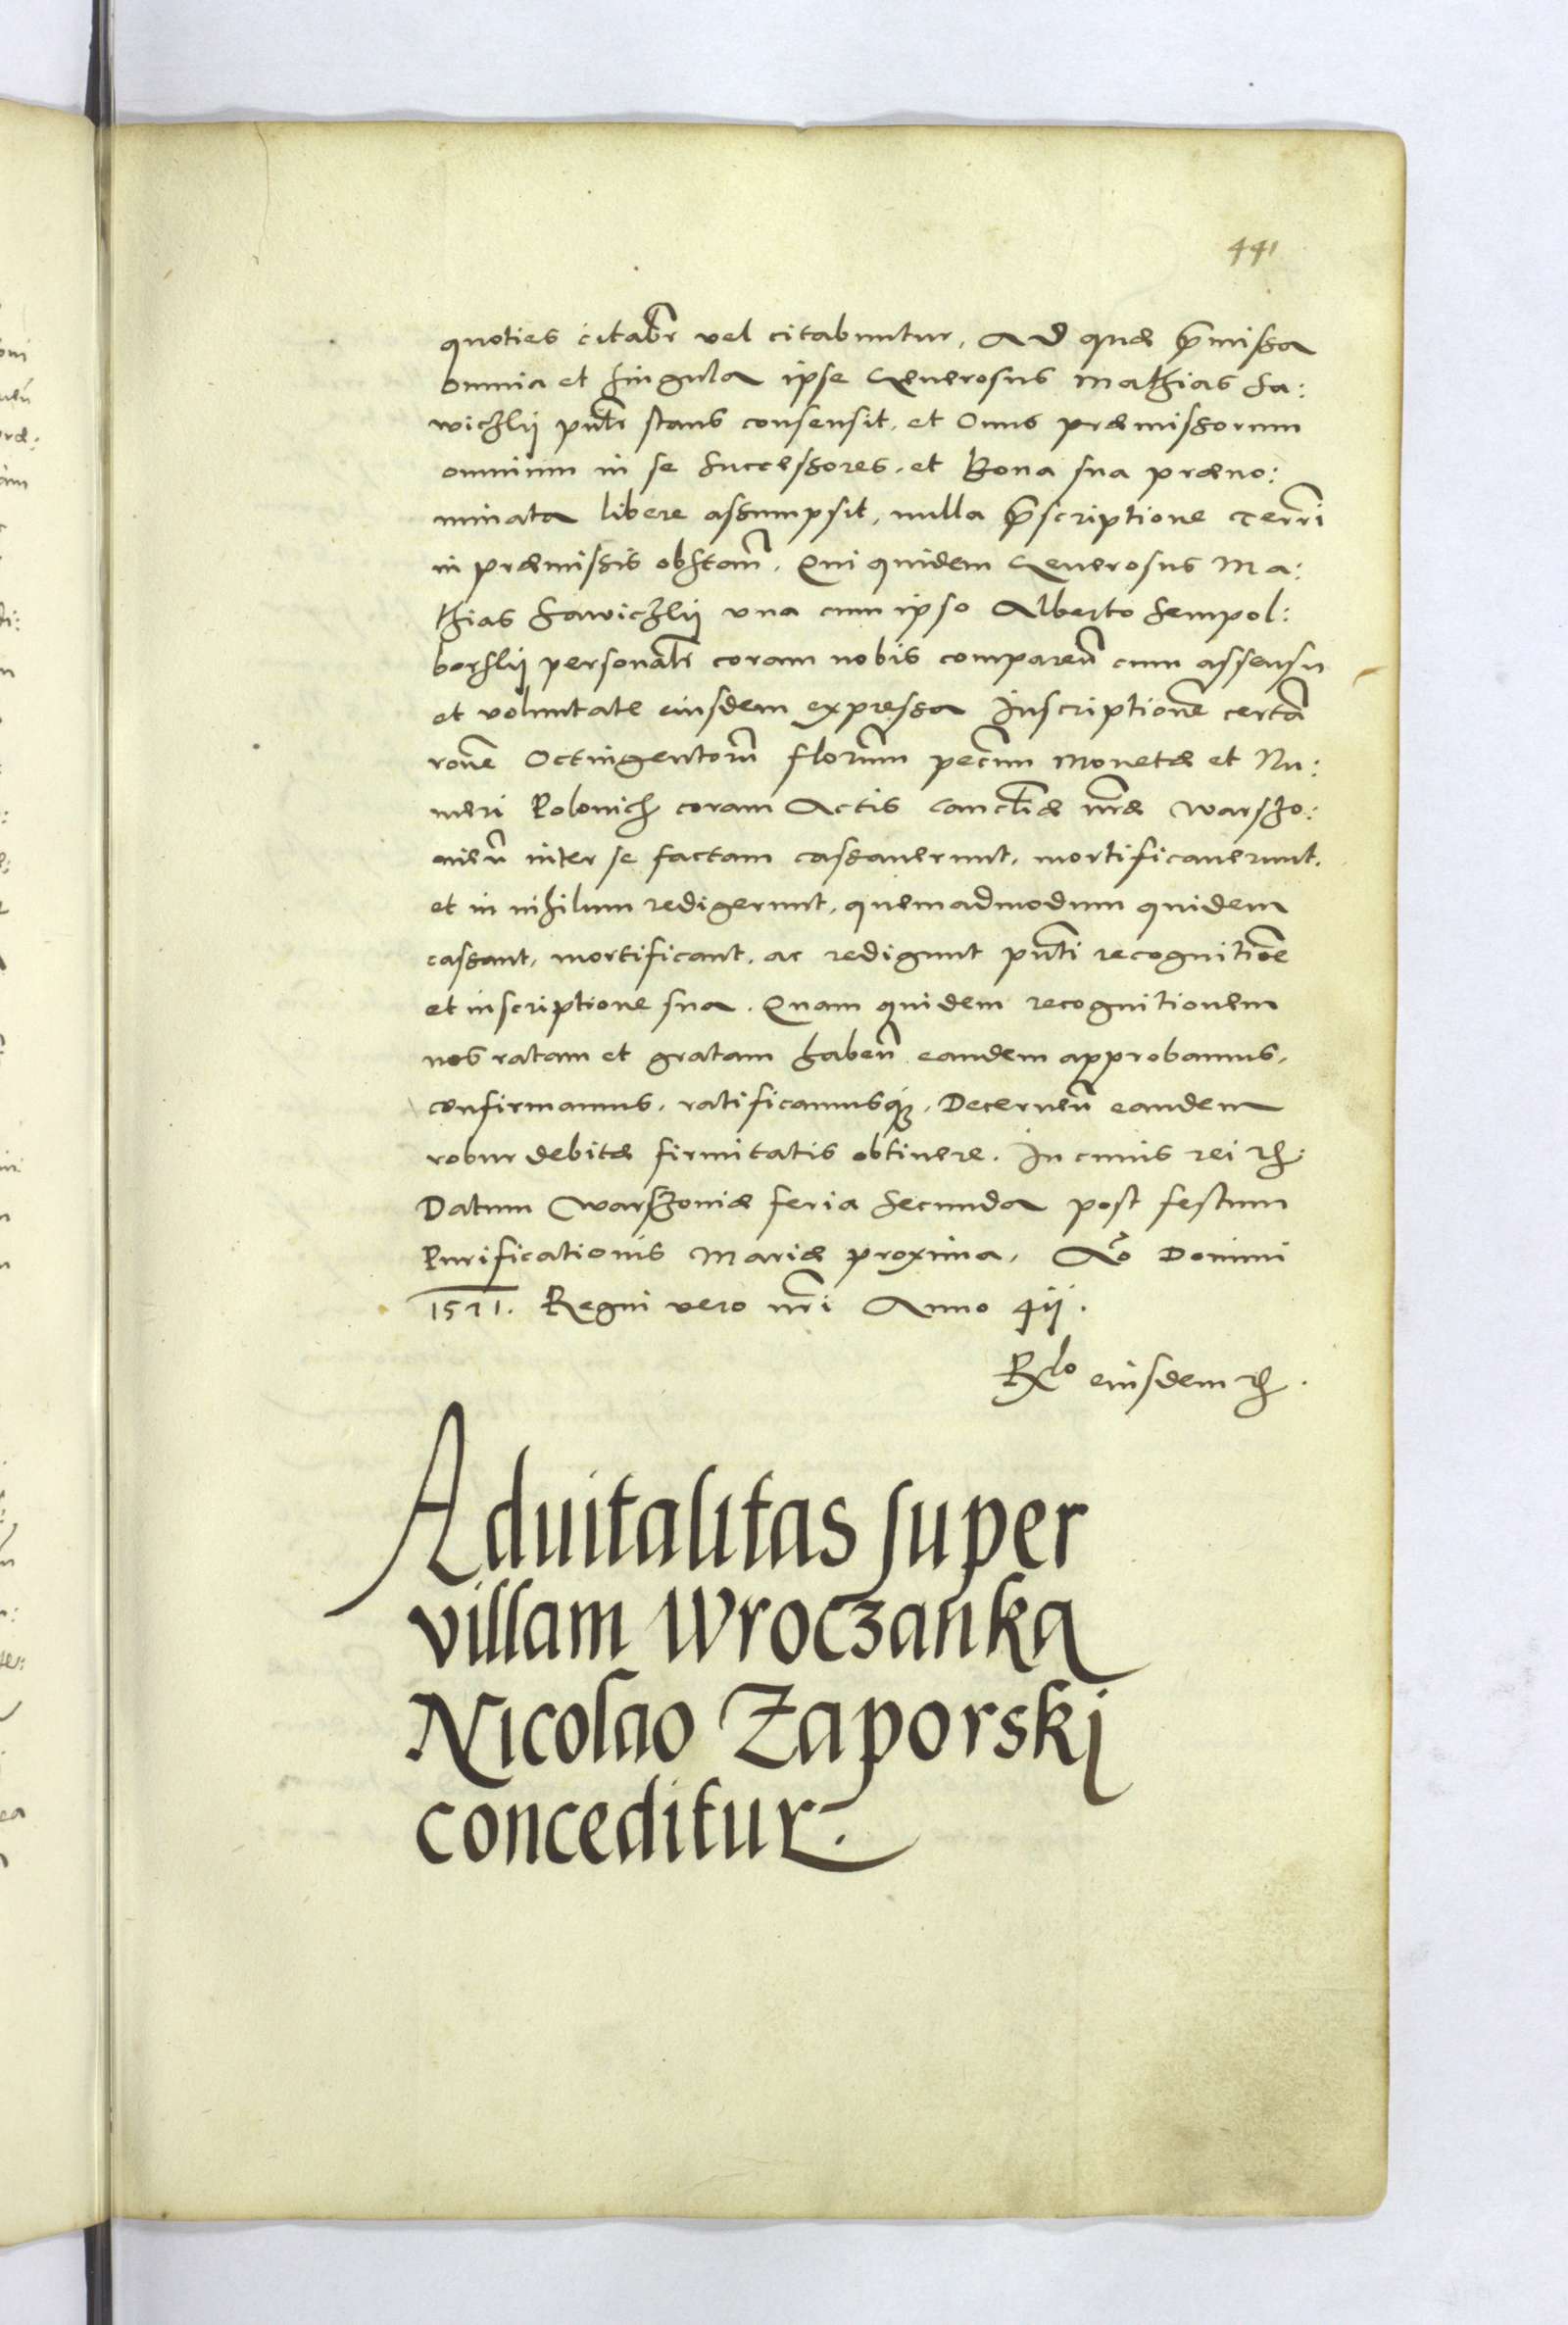 441
quoties citabr̃ vel citabuntur, Ad quæ p̃missa
omnia et singula ipse Generosus Mathias Sa:
wiczkij pn̄tr stans consensit, et Onus præmissorum
omnium in se Successores, et Bona sua præno:
minata libere assumpsit, nulla p̃scriptione terrr̃i
in præmissis obstan̄. Qui quidem Generosus Ma:
thias Sawiczkij una cum ipso Alberto Sempol:
borskij personalr̃ coram nobis comparen̄ cum assensu
et voluntate eiusdem expressa Inscriptionē certā
rōne Octingentorū florenū pecun̄ Monetæ et Nu:
meri Polonicz coram Actis Cancell̃iæ nr̃æ Warszo:
vien̄ inter se factam cassaverunt, mortificaverunt,
et in nihilum redigerunt, quemadmodum quidem
cassant, mortificant, ac redigunt pn̄ti recognitiōe
et inscriptione sua. Quam quidem recognitionem
nos ratam et gratam haben̄ eandem approbamus,
confirmamus, ratificamusq́, Decernen̄ eandem
robur debitæ firmitatis obtinere. In cuius rei ꝛc:
Datum Warszoviæ feria Secunda post festum
Purificationis Mariæ proxima, Aō Domini
1571. Regni vero nr̃i Anno 4ij.
Rlo eiusdem ꝛc.
Aduitalitas super
villam Wroczanka
Nicolao Zaporskj
conceditur.